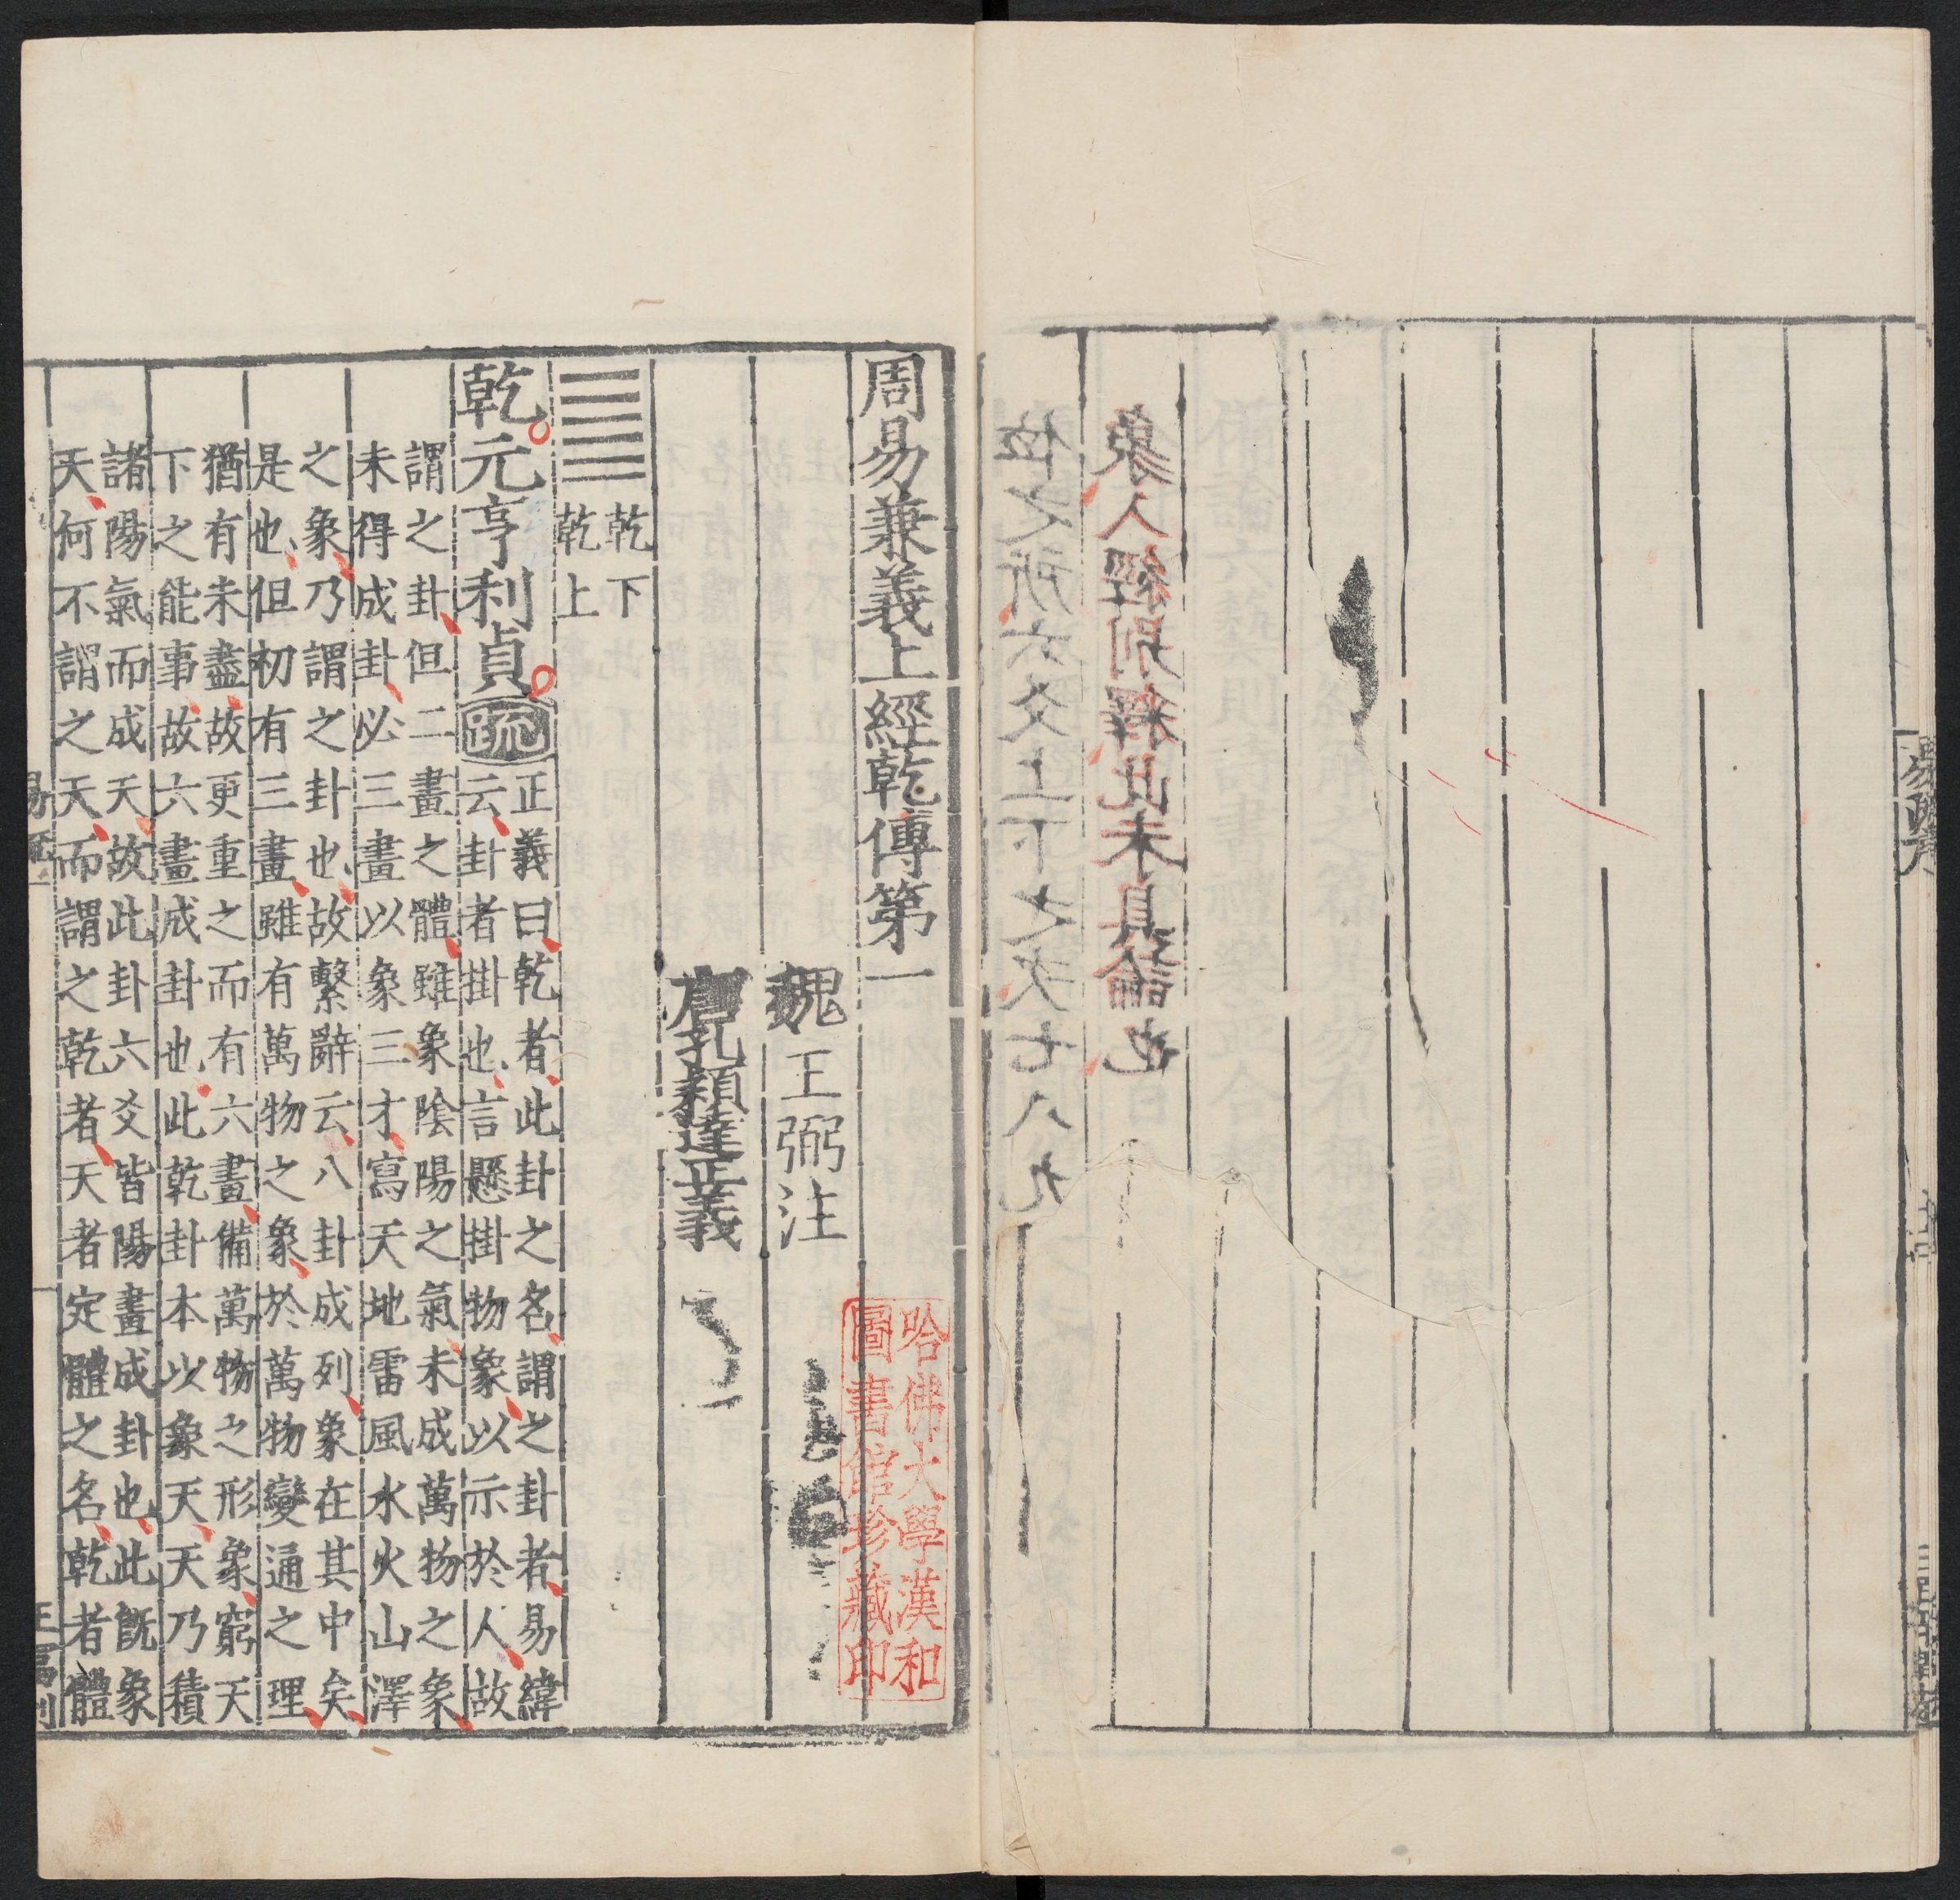 象入經別釋此未具論也
位之所六爻上下之次七八九
周易兼義上經乾傳第一
哈佛大學漢和
圖書館珍藏印
魏王弼注
唐孔穎達正義
乾下
乾上
乾元亨利貞疏
正義曰乾者此卦之名謂之卦者易緯
云卦者掛也言懸掛物象以示於人故
謂之卦但二畫之體雖象陰陽之氣未成萬物之象
未得成卦必三畫以象三才寫天地雷風水火山澤
之象乃謂之卦也故繫辭云八卦成列象在其中矣
是也但初有三畫雖有萬物之象於萬物變通之理
猶有未盡故更重之而有六畫備萬物之形象窮天
下之能事故六畫成卦也此乾卦本以象天天乃積
諸陽氣而成天故此卦六爻皆陽畫成卦也此旣象
天何不謂之天而謂之乾者天者定體之名乾者體